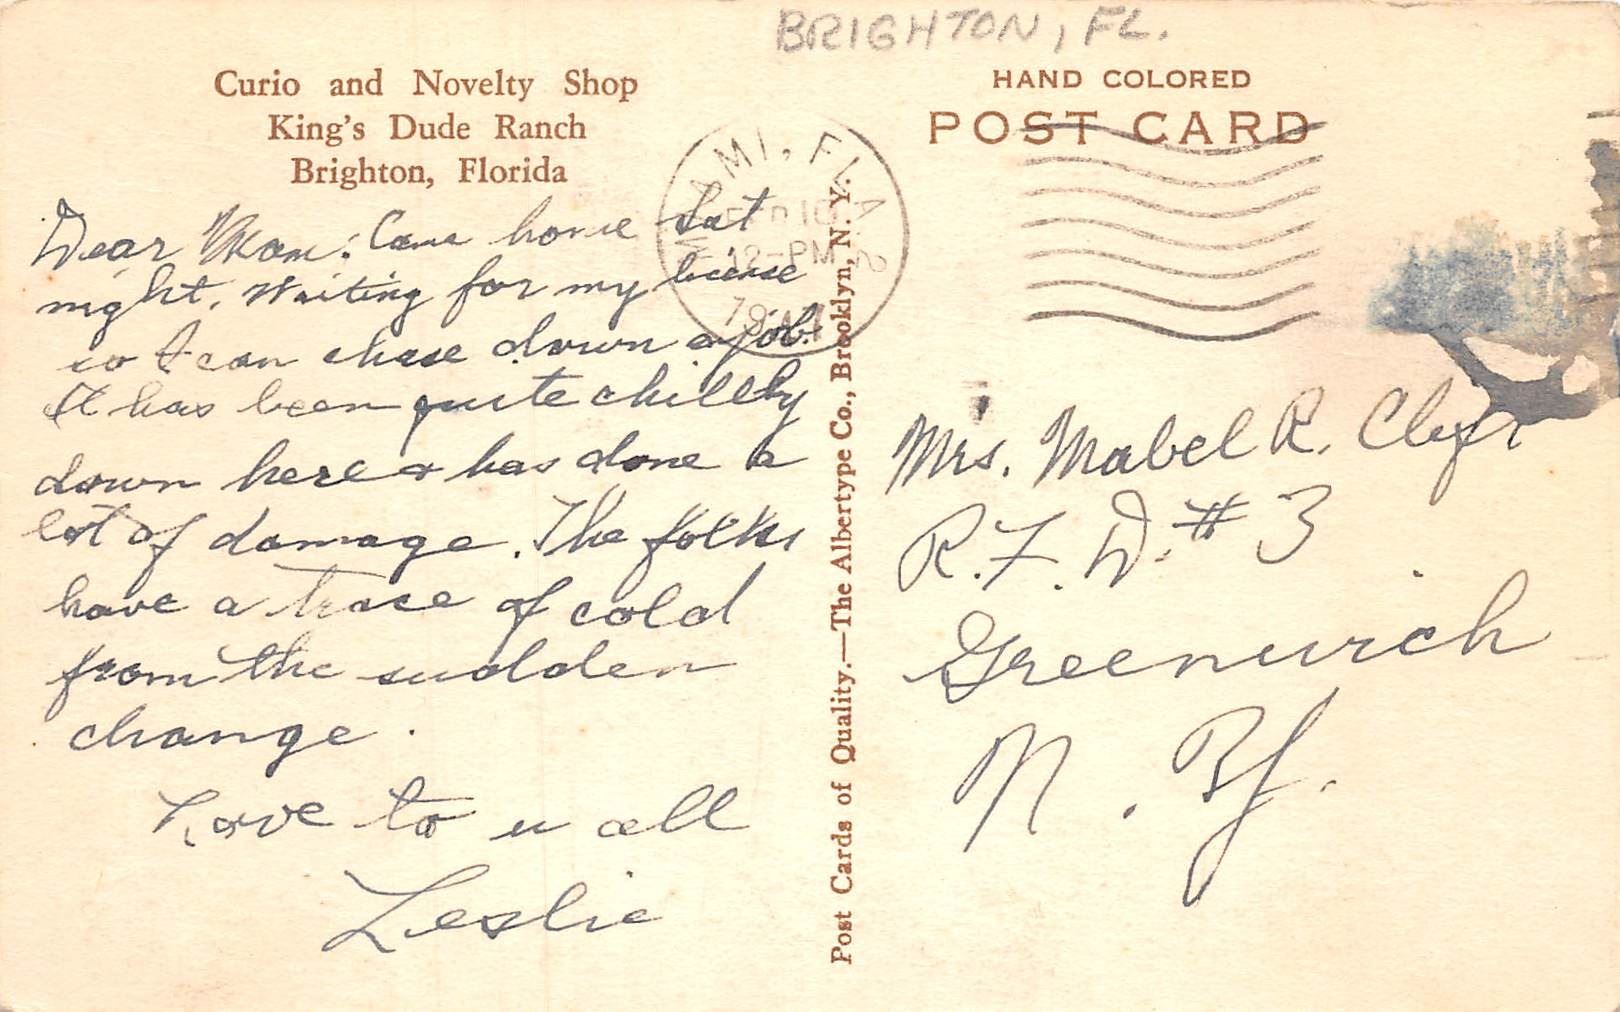 BRIGHTON, FL.
Curio and Novelty Shop
King's Dude Ranch
Brighton, Florida
HAND COLORED
POST CARD
MIAMI, FLA.
12-PM
Dear Mom: Came home Sat
night. Waiting for my license
so I can chase down a job.
It has been quite chillby
down here & has done a
lot of damage. The folks
have a trace of cold
from the sudden
change.
Love to u all
Leslie
Post Cards of Quality.—The Albertype Co., Brooklyn, N. Y.
Mrs. Mabel R.
R.F.D. # 3
Greenwich
N. Y.